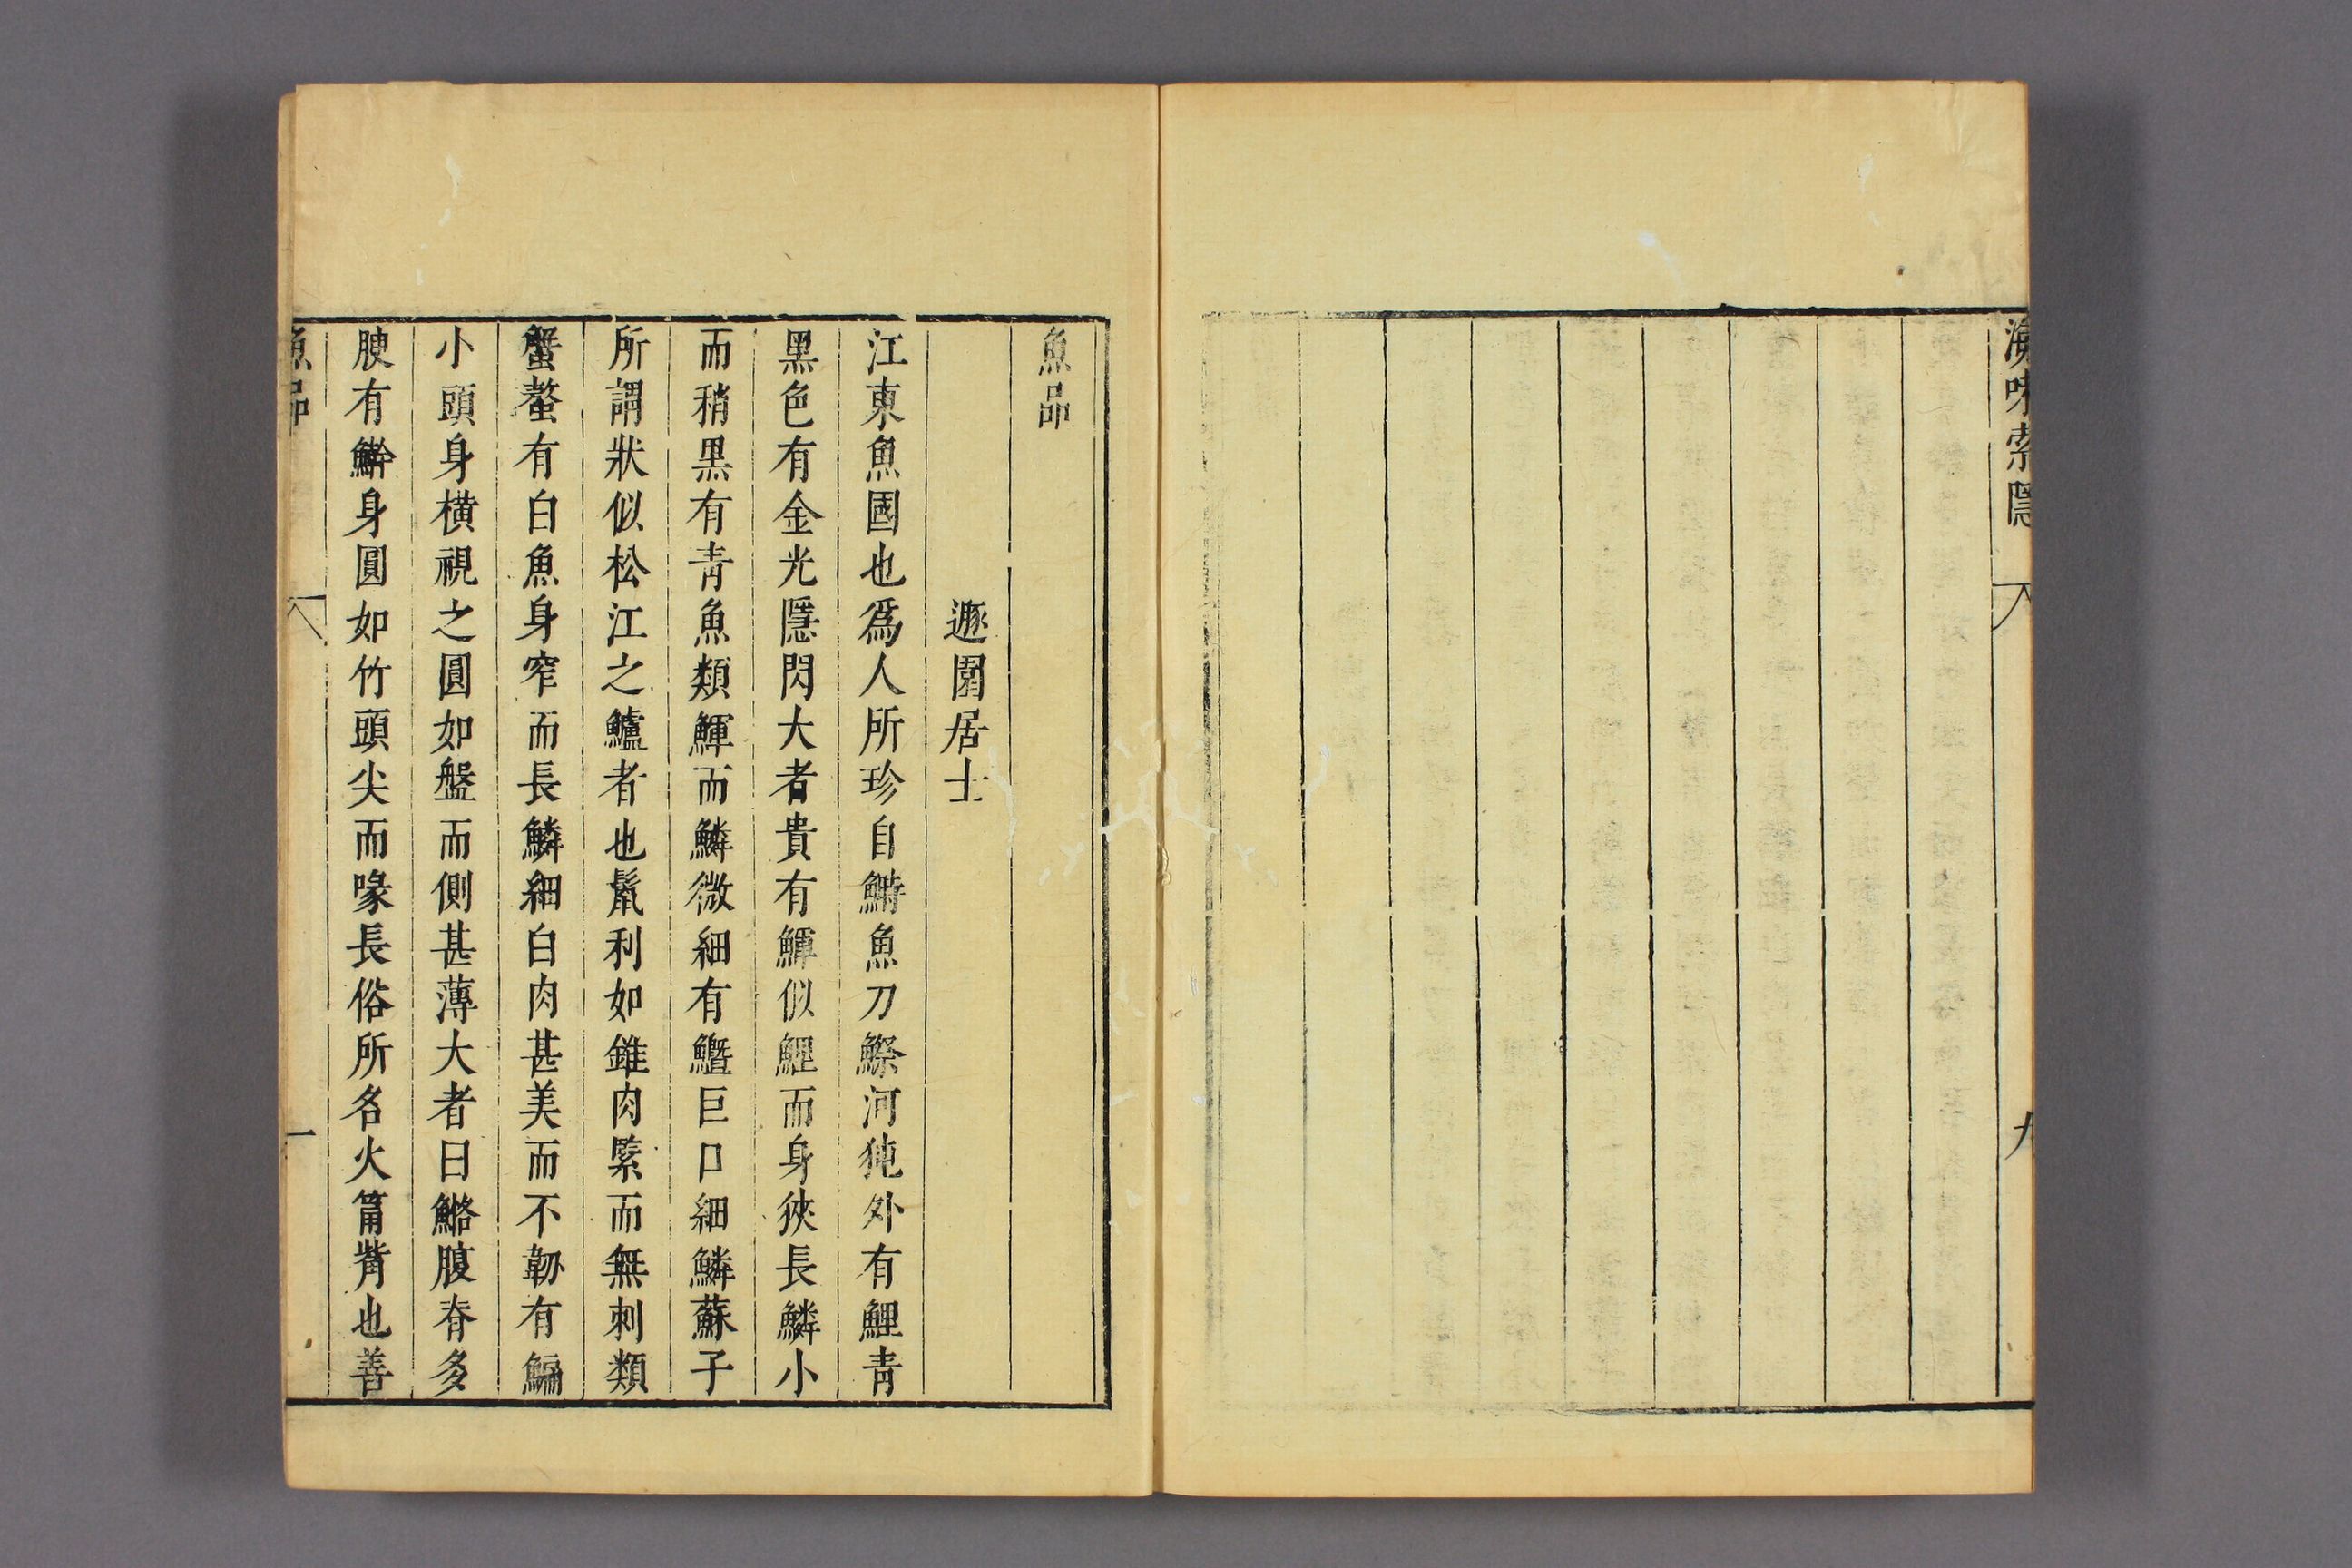 海味索隱
九
魚品
遯園居士
江東魚國也爲人所珍自鰣魚刀鱭河㹠外有鯉青
黑色有金光隱閃大者貴有鯶似鯉而身狹長鱗小
而稍黒有青魚類鯶而鱗微細有鱖巨口細鱗蘇子
所謂狀似松江之鱸者也鬛利如錐肉緊而無刺類
蟹螯有白魚身窄而長鱗細白肉甚美而不韌有鯿
小頭身横視之圓如盤而側甚薄大者曰鮥腹脊多
腴有身圓如竹頭尖而喙長俗所名火筩觜也善
魚品
一